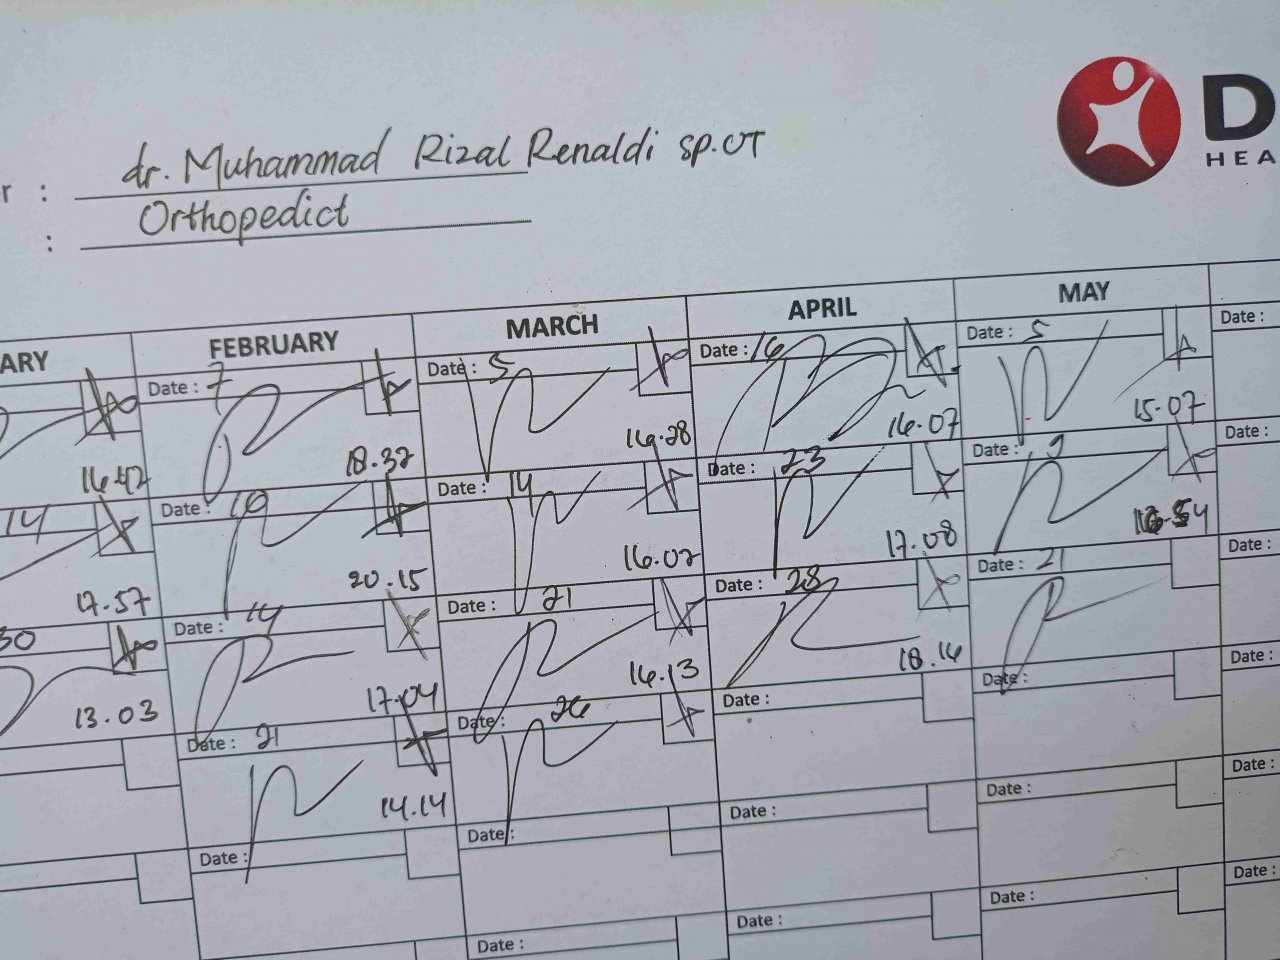 r : dr. Muhammad Rizal Renaldi sp.OT
: Orthopedict
D
HEA
ARY FEBRUARY MARCH APRIL MAY
Date : 7 Date : 5 Date : 16 Date : 5 Date :
16.42 18.32 16.28 16.07 15.07
14 Date : 10 Date : 14 Date : 23 Date : 9 Date :
17.57 20.15 16.02 17.08
30 Date : 14 Date : 21 Date : 28 Date : 21 Date :
13.03 17.04 16.13 18.16
Date : 21 Date : 26 Date : Date : Date :
14.14
Date : Date : Date : Date : Date :
Date : Date : Date : Date :